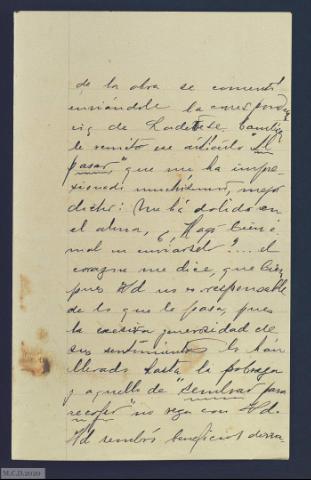 de la obra se comentó
enviándole la correspon
cia de También
le remito ese artículo "Al
pasar" que me ha impre-
sionado muchísimo, mejor
dicho: me há dolido en
el alma, ¿Hago bien ó
mal en enviársel ?... el
corazon me dice, que bien
pues Vd no es responsable
de lo que le pasa, pues
la excesiva generosidad de
sus sentimientos le han
llevado hasta la pobreza
y aquello de "sembrar para
recojer" no reza con Vd.
Vd sembró beneficios
M.C.D.2020